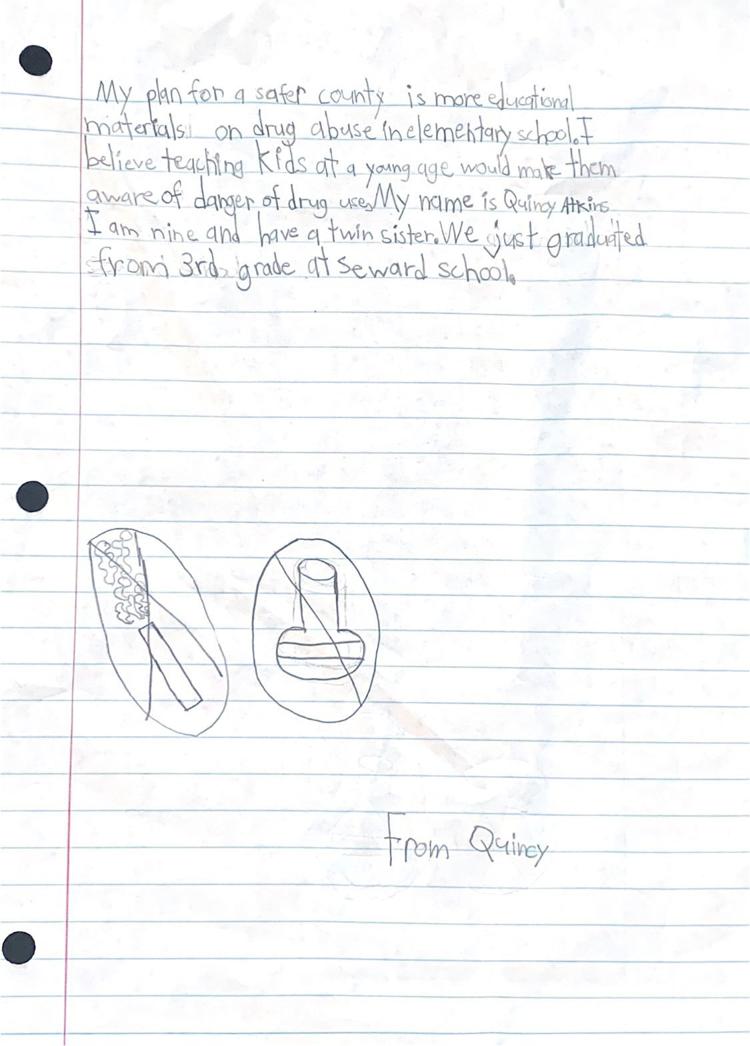 My plan for a safer county is more educational
materials on drug abuse in elementary school. I
believe teaching kids at a young age would make them
aware of danger of drug use. My name is Quincy Atkins.
I am nine and have a twin sister. We just graduated
from 3rd grade at Seward school.
From Quincy